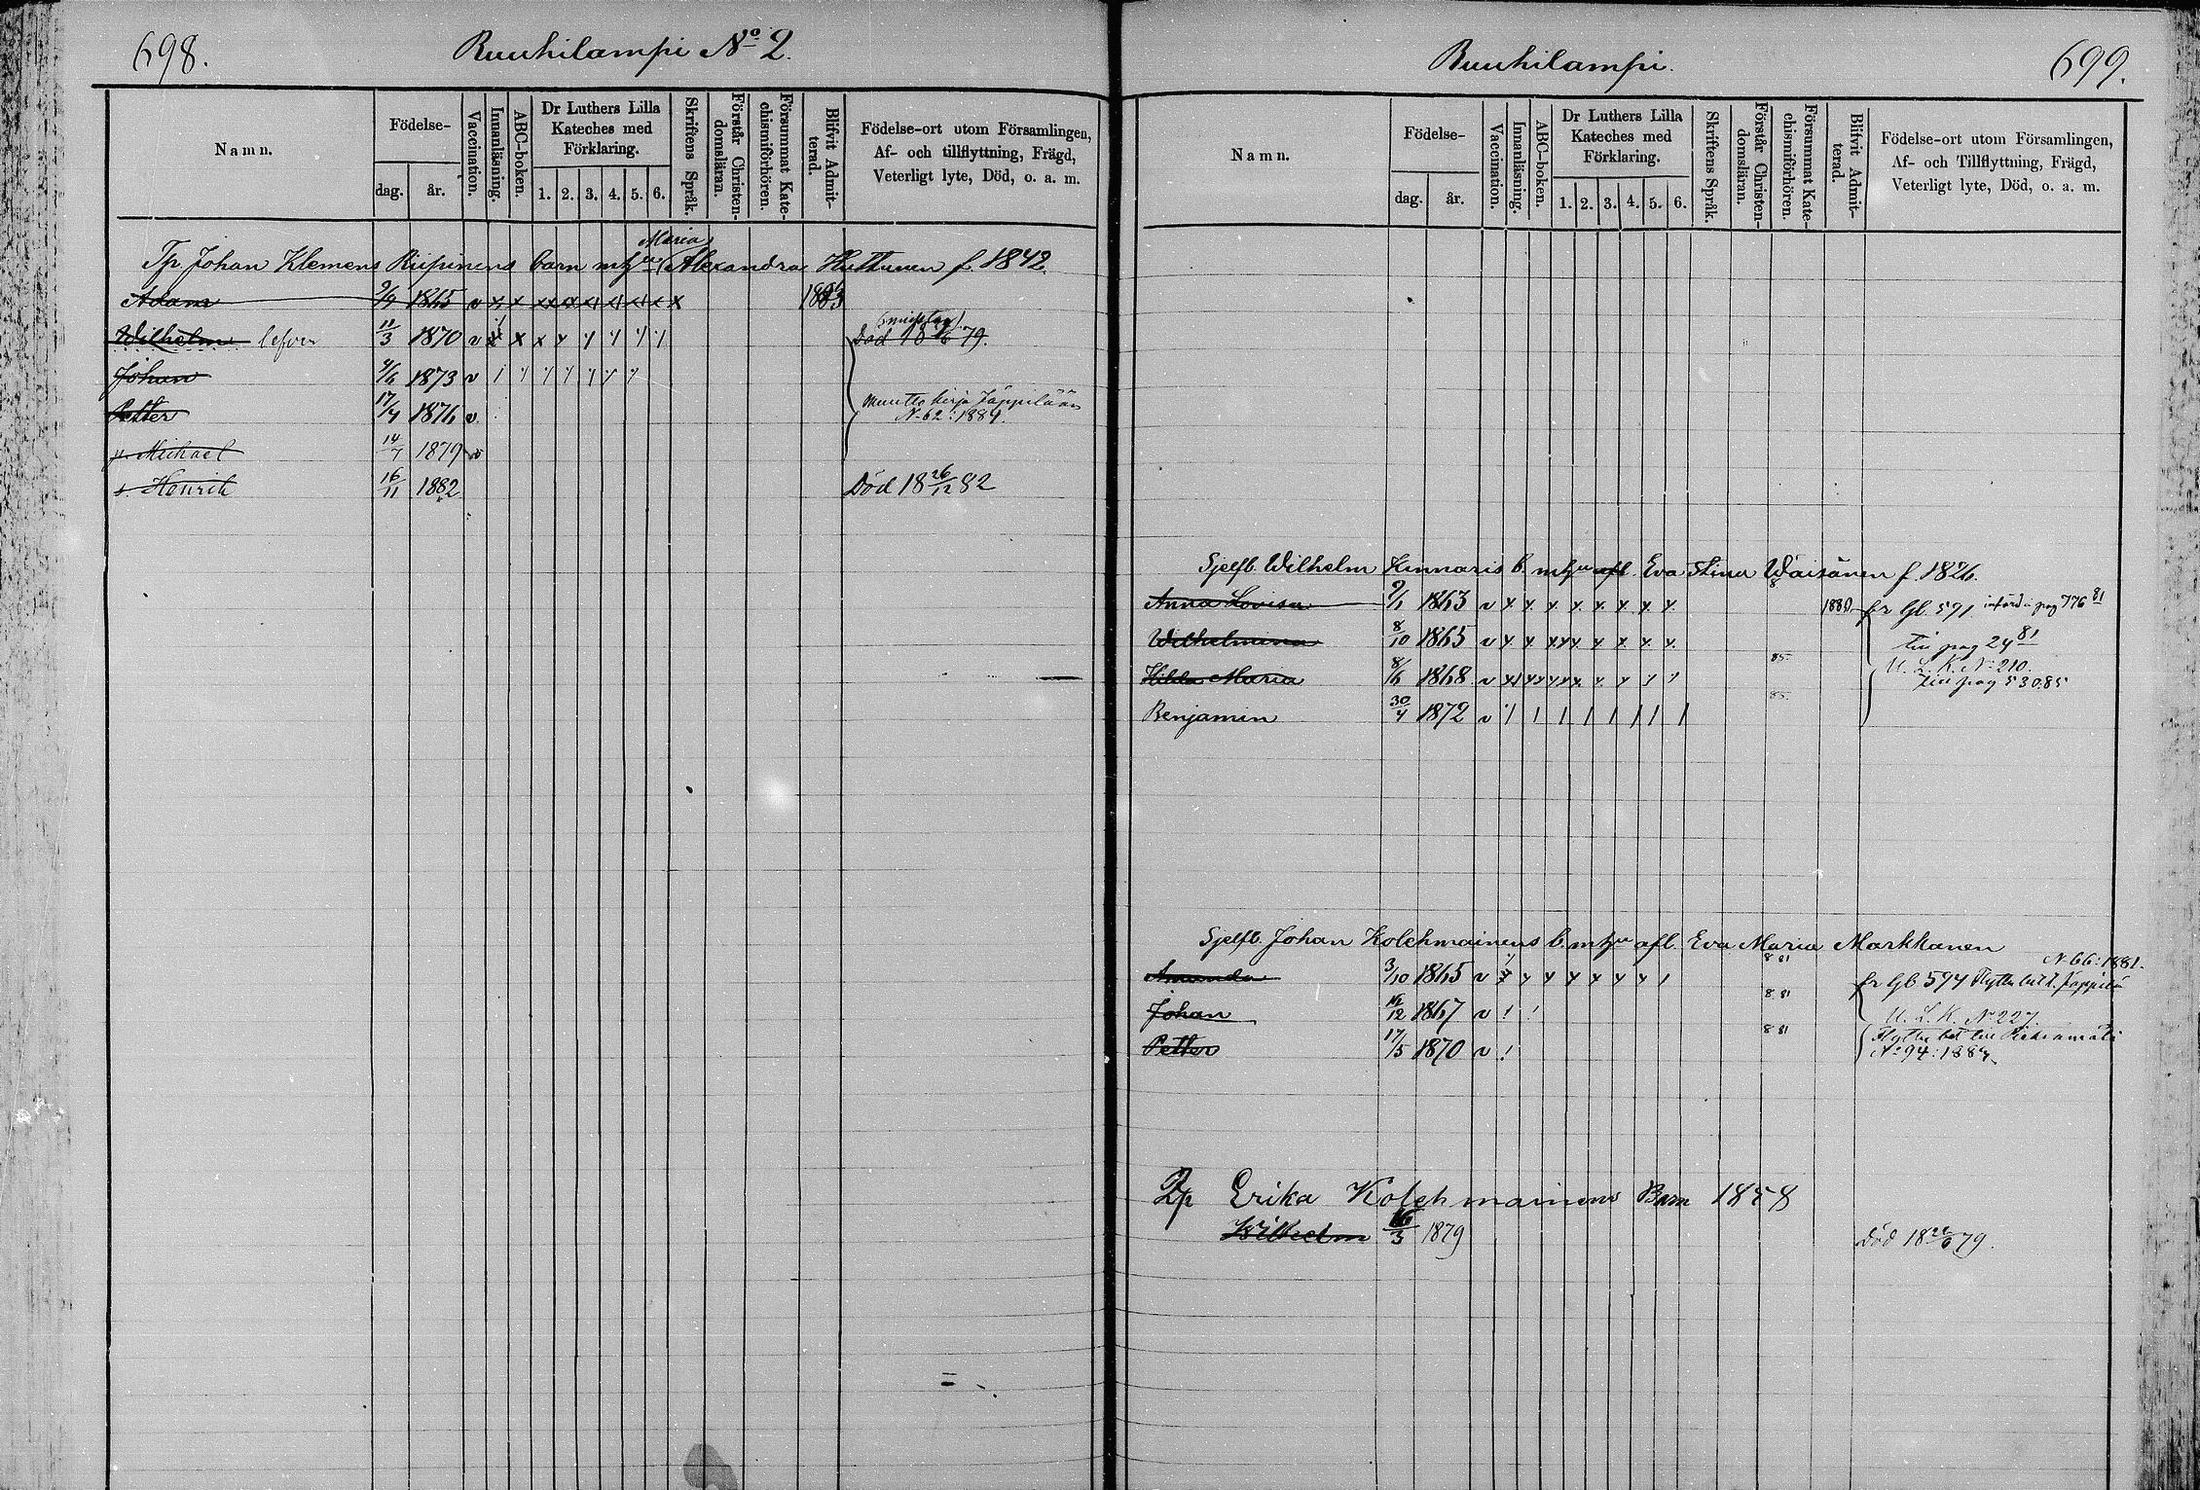 698.
Ruuhilampi No 2.
Namn.
Födelse-
dag.
år.
Vaccination.
Innanläsning.
ABC-boken.
Dr Luthers Lilla
Kateches med
Förklaring.
1. 2. 3. 4. 5. 6.
Skriftens Språk.
Förstår Christen-
domsläran.
Försummat Kate-
chismiförhören.
Blifvit Admit-
terad.
Födelse-ort utom Församlingen,
Af- och tillflyttning, Frägd,
Veterligt lyte, Död, o. a. m.
Maria
Tp Johan Klemens Riipinens barn m hu Alexandra Huttunen f. 1842
Adam 9/9 1865 v x x x x x x x x x 1883
Wilhelm lefver 11/3 1870 v x x x Död 18 /6 79.
Johan 4/6 1873 v
Petter 17/4 1876 v
Muutto kirja Jäppilään
N-62: 1884.
Michael 14/7 1879 v
s. Henrik 16/11 1882 Död 18 26/12 82
699.
Ruuhilampi.
Namn.
Födelse-
dag.
år.
Vaccination.
Innanläsning.
ABC-boken.
Dr Luthers Lilla
Kateches med
Förklaring.
1. 2. 3. 4. 5. 6.
Skriftens Språk.
Förstår Christen-
domsläran.
Försummat Kate-
chismiförhören.
Blifvit Admit-
terad.
Födelse-ort utom Församlingen,
Af- och Tillflyttning, Frägd,
Veterligt lyte, Död, o. a. m.
Sjelfb. Wilhelm Kinnaris b. m hu afl. Eva Stina Wäisänen f. 1826.
Anna Lovisa 9/1 1863 v x x x x x x x x 1880 fr Gb. 591. införd i pag 776 81
Wilhelmina 8/10 1865 v x x x x x x x x x till pag 24 81
Hilda Maria 8/6 1868 v 85 U. L. K. No 210.
till pag 530 85
Benjamin 30/4 1872 v 85
Sjelfb. Johan Kolehmainens b. m hu afl. Eva Maria Markkanen
N-66: 1881.
Amanda 3/10 1865 v 8 81 fr Gb 594 Flytte bet. t. Jäppilä
Johan /12 1867 v 8 81 U. L. K. No 227
Petter 17/5 1870 v 8 81 Flytte bet till Pieksämäki
No 94: 188
Erika Kolehmainens Barn 1858
Wilhelm 16/3 1879 Död 18 /6 79.